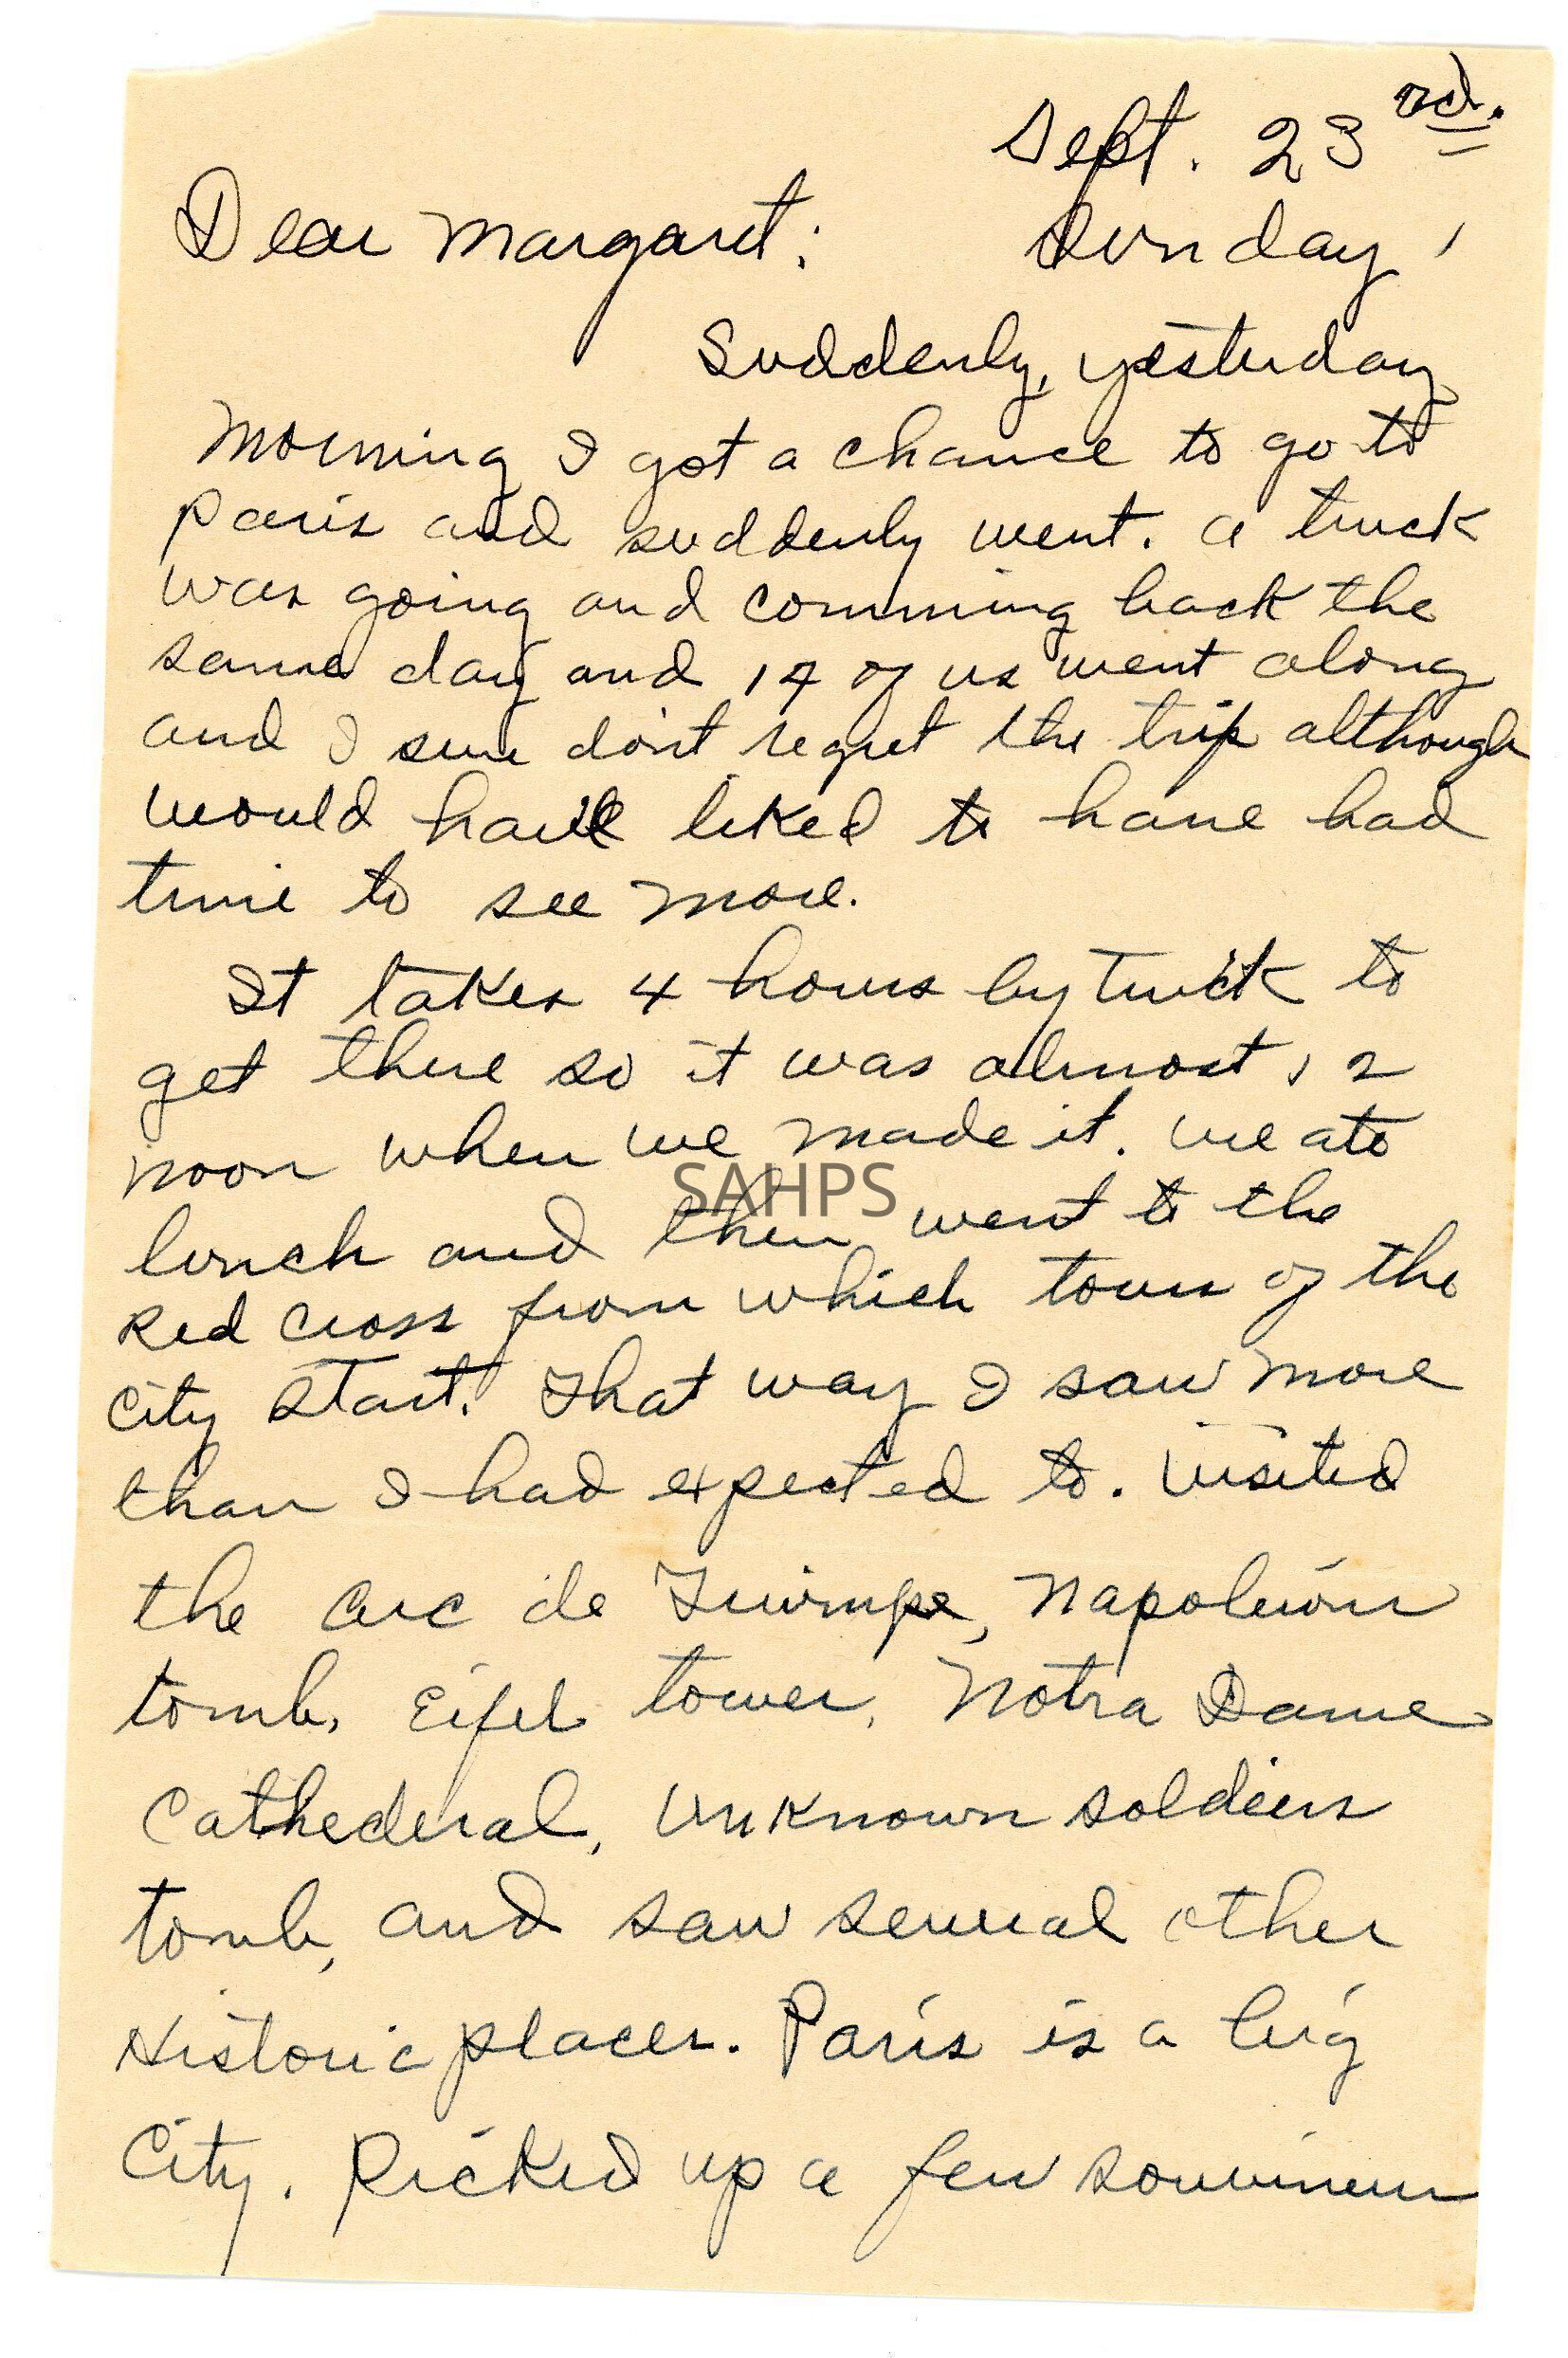 Sept. 23rd.
Dear Margaret: Sunday,
Suddenly, yesterday
morning I got a chance to go to
Paris and suddenly went. A truck
was going and comming back the
same day and 14 of us went along
and I sure don't regret the trip although
would have liked to have had
time to see more.
It takes 4 hours by truck to
get there so it was almost 12
noon when we made it. We ate
SAHPS
lunch and then went to the
Red Cross from which tours of the
city start. That way I saw more
than I had expected to. Visited
the Arc de Triumpe, Napoleion
tomb, Eifel tower, Notra Dame
Cathederal, Unknown soldiers
tomb, and saw several other
Historic places. Paris is a big
City. Picked up a few souviners